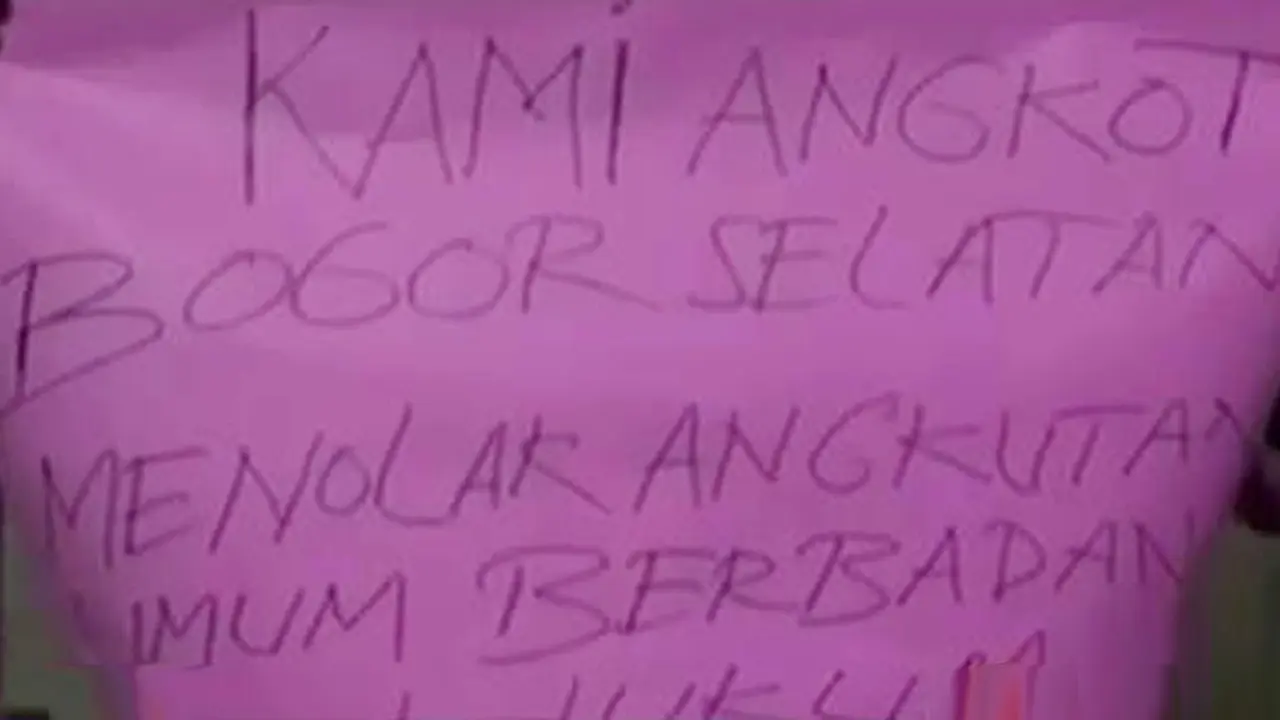 KAMI ANGKOT
BOGOR SELATAN
MENOLAK ANGKUTAN
UMUM BERBADAN